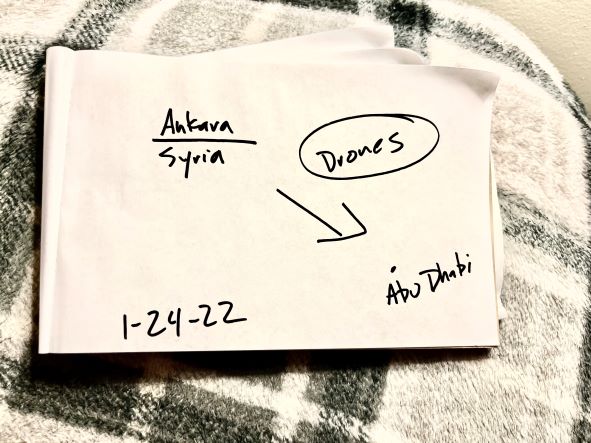 Ankara
Syria
Drones
Abu Dhabi
1-24-22